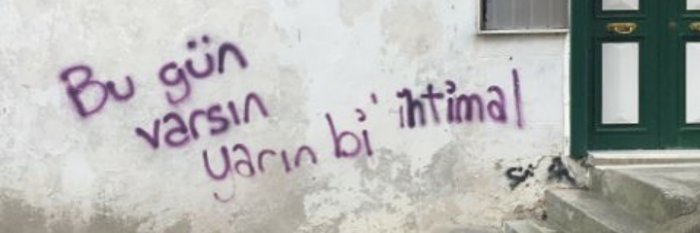 Bu gün
varsın
yarın bi' ihtimal